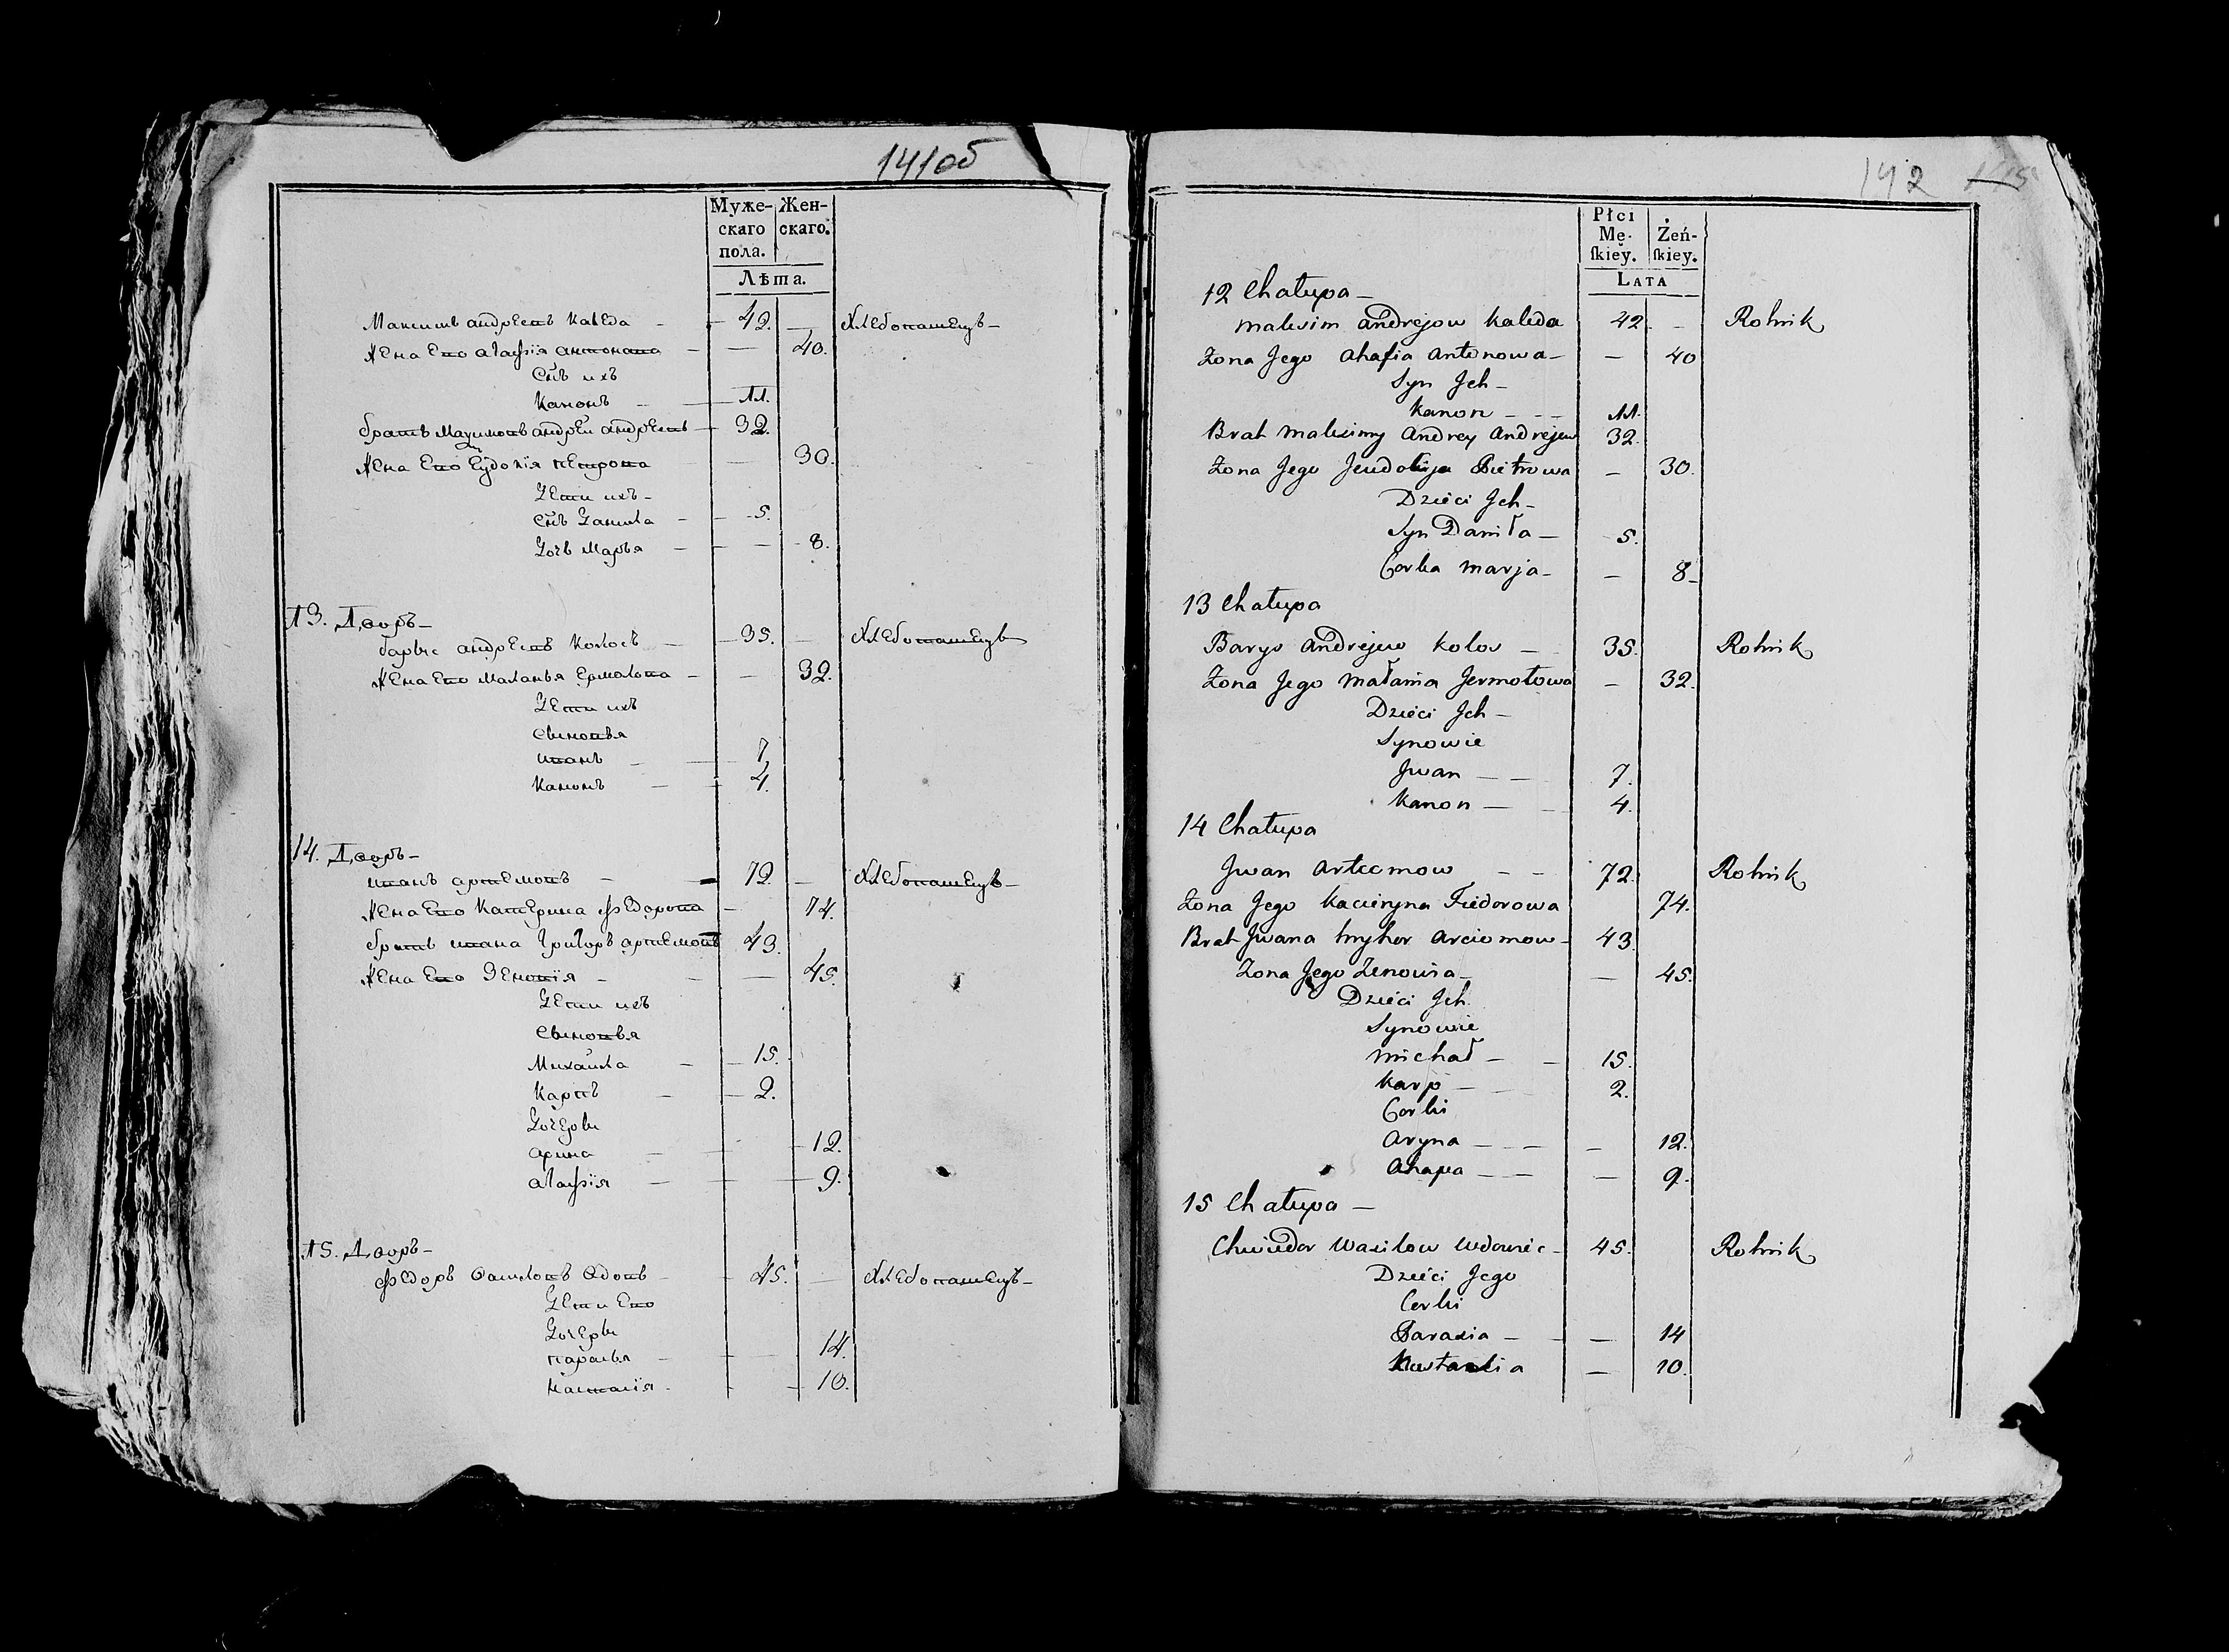 141об
Муже- Жен-
скаго скаго.
пола.
Лѣта.
Максимъ андреевъ Каледа 42. Хлебопашецъ
Жена Ево агафія антонава 40.
Сн̃ъ ихъ
Канонъ 11.
братъ Максимовъ андрей андреевъ 32.
Жена Ево Еудокія петрова 30.
Дети ихъ
Сн̃ъ Данила 5.
Дочь Марья 8.
13. Дворъ
барыс андреевъ Колосъ 35. Хлебопашецъ
Жена Ево Маланья Ермолова 32.
Дети ихъ
Сыновья
иванъ 7
Канонъ 4.
14. Дворъ
иванъ артемовъ 72. Хлебопашецъ
Жена Ево Катерина федорова 74.
братъ ивана Григоръ артемовъ 43.
Жена Ево Зеновія 45.
Дети ихъ
Сыновья
Михайла 15.
Карпъ 2.
Дочеры
арина 12.
агафія 9.
15. Дворъ
федоръ Василовъ вдовъ 45. Хлебопашецъ
Дети Ево
Дочеры
парасья 14.
настасія 10.
142
Płci
Mę- Żeń-
ſkiey. ſkiey.
LATA
12 Chałupa
Maksim Andrejow Kaleda 42 Rolnik
Zona Jego Ahafia Antonowa 40
Syn Jch
Kanon 11.
Brat Maksimy Andrey Andrejew 32.
Zona Jego Jeudokija Pietrowa 30.
Dzieci Jch
Syn Daniła 5.
Corka Marja 8
13 Chałupa
Barys Andrejew Kolos 35. Rolnik
Zona Jego Małania Jermołowa 32.
Dzieci Jch
Synowie
Jwan 7.
Kanon 4.
14 Chałupa
Jwan Arteomow 72. Rolnik
Zona Jego Kacieryna Fiedorowa 74.
Brat Jwana Hryhor Arciomow 43.
Zona Jego Zenowia 45.
Dzieci Jch
Synowie
Michał 15.
Karp 2.
Corki
Aryna 12.
Ahapa 9.
15 Chałupa
Chwiedor Wasilow wdowiec 45. Rolnik
Dzieci Jego
Corki
Parasia 14
Nastasia 10.